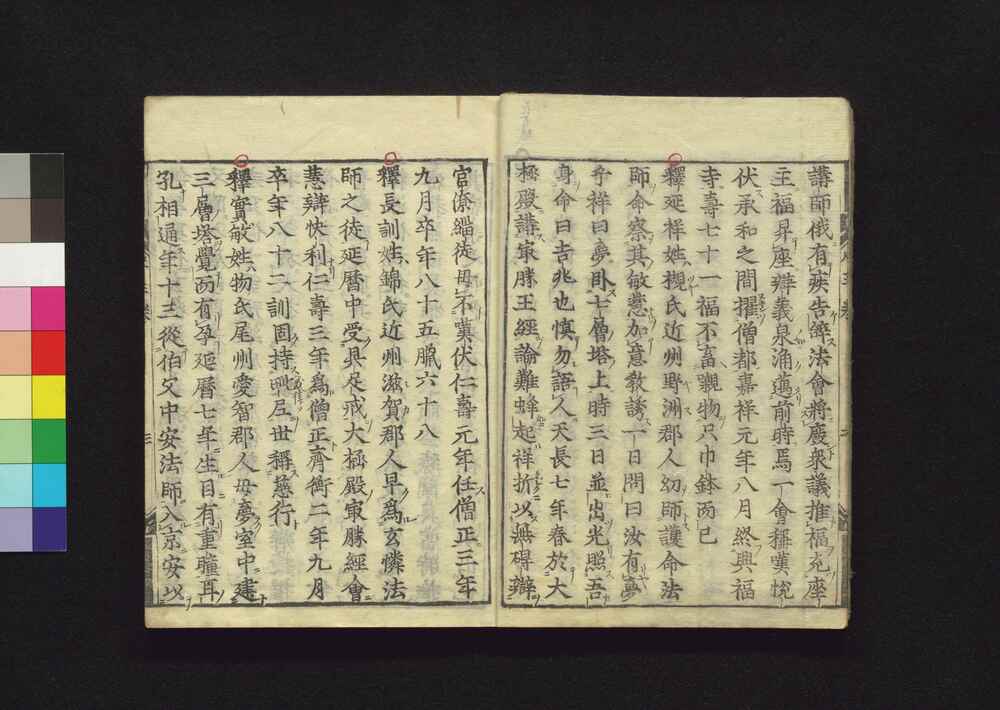 講師俄有疾告辭法會將廢衆議推福充座
主福昇座辯義泉涌邁前時焉一會稱嘆悅
伏承和之間擢僧都嘉祥元年八月終興福
寺壽七十一福不畜嚫物只巾鉢而已
釋延祥姓槻氏近州野洲郡人幼師護命法
師命察其敏慧加意敎誘一日問曰汝有夢
乎祥曰夢臥七層塔上時三日並出光照吾
身命曰吉兆也愼勿語人天長七年春於大
極殿講冣勝王經論難蜂起祥折以無碍辯
官寮緇徒毋不嘆伏仁壽元年任僧正三年
九月卒年八十五臘六十八
釋長訓姓錦氏近州滋賀郡人早爲玄憐法
師之徒延曆中受具足戒大極殿冣勝經會
慧辯快利仁壽三年爲僧正齊衡二年九月
卒年八十二訓固持鴨尼世稱慈行
釋實敏姓物氏尾州愛智郡人母夢室中建
三層塔覺而有孕延曆七年生目有重瞳耳
孔相通年十三從伯父中安法師入京安以